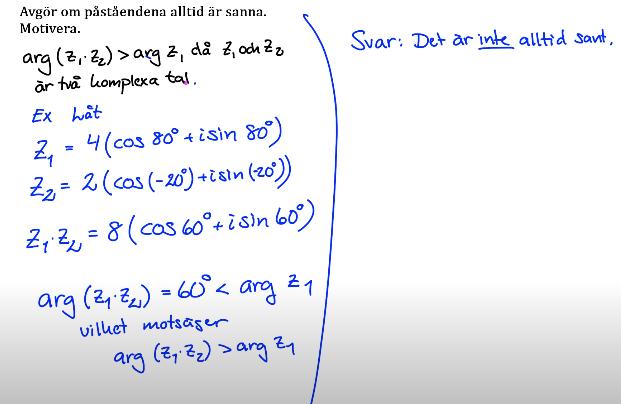 Avgör om påståendena alltid är sanna.
Motivera.
arg (z₁·z₂) > arg z₁ då z₁ och z₂
är två komplexa tal.
Ex Låt
z₁ = 4(cos 80° + i sin 80°)
z₂ = 2(cos(-20°) + i sin(-20°))
z₁·z₂ = 8(cos 60° + i sin 60°)
arg (z₁·z₂) = 60° < arg z₁
vilket motsäger
arg (z₁·z₂) > arg z₁
Svar: Det är inte alltid sant.